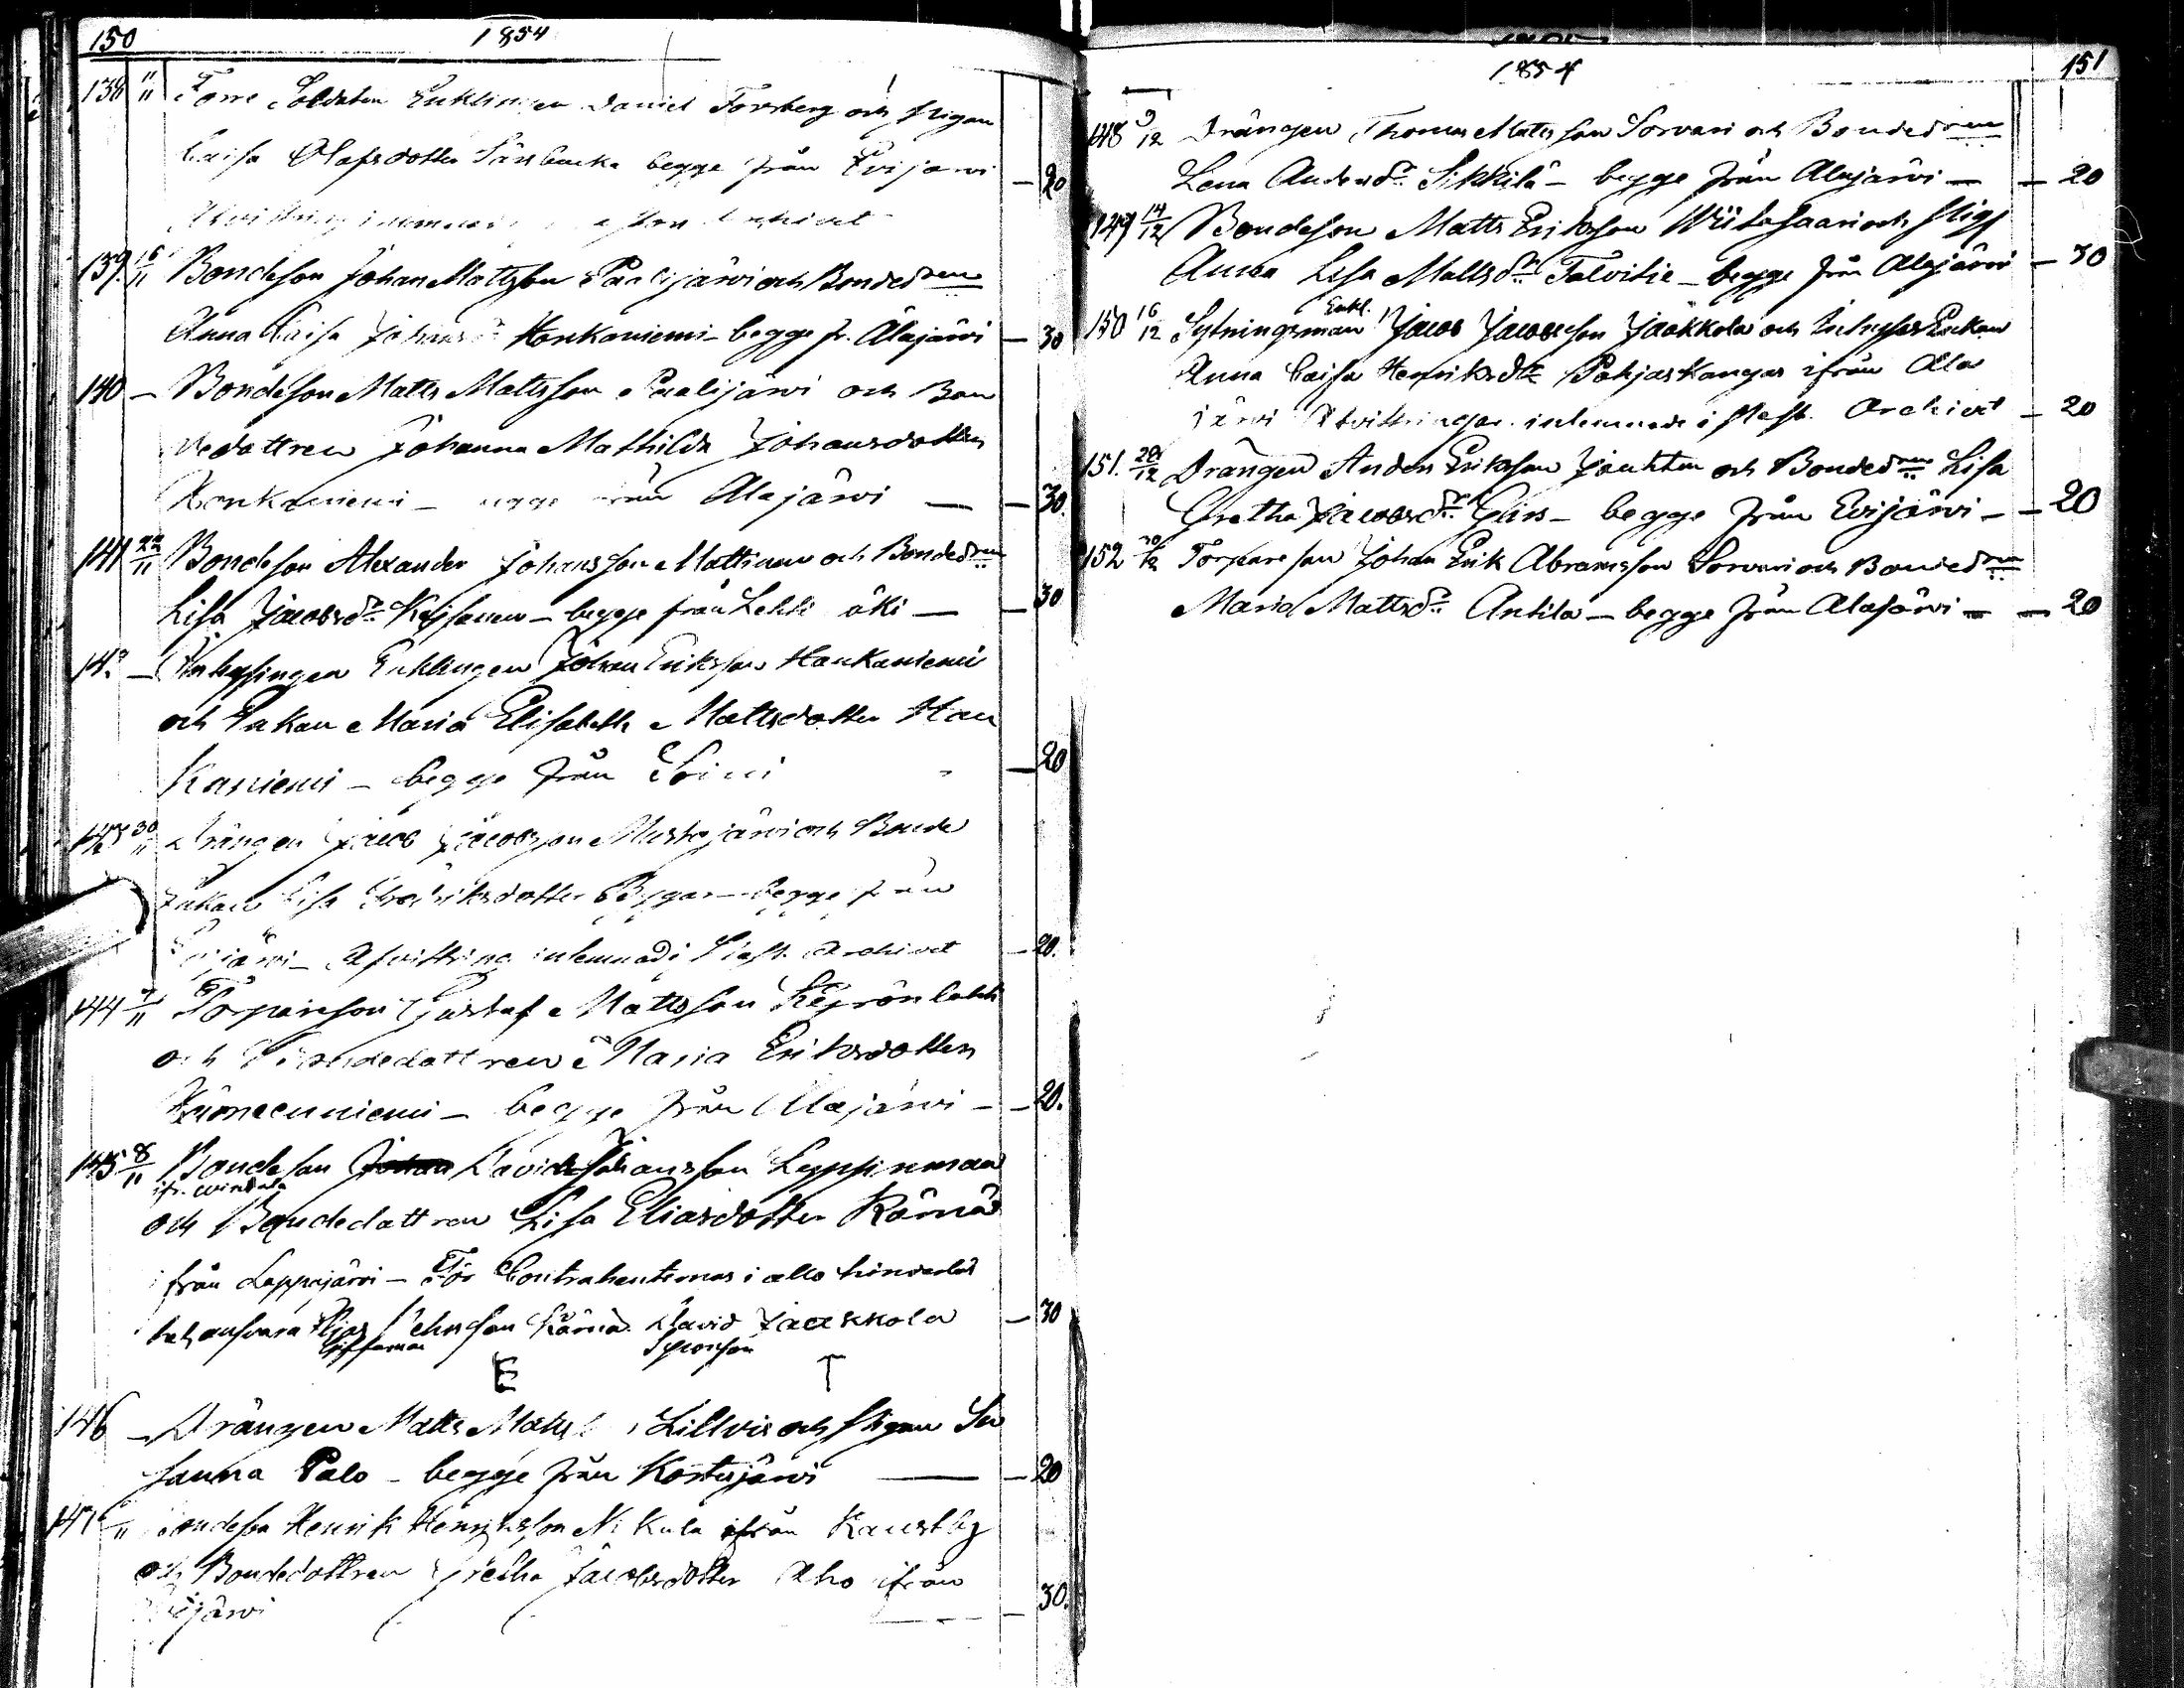 150 1854
138 11 Förre Soldaten Enklingen Daniel Forsberg och Pigan
Caisa Olofsdotter Särsbacka begge från Evijärvi — 20
139. 16/11 Bondeson Johan Mattsson Paalijärvi och Bondedren
Anna Caisa Johansdr Honkaniemi – begge fr. Alajärvi — 30
140 — Bondeson Matts Mattsson Paalijärvi och Bon
dedottren Johanna Mathilda Johansdotter
Honkaniemi – begge från Alajärvi — 30.
141 22/11 Bondeson Alexander Johansson Mattinen och Bondedren
Lisa Jacobsdr – begge från Lehti äki — 30
142 — Inhysingen Enklingen Johan Eriksson Hankaniemi
och Enkan Maria Elisabeth Mattsdotter Han
kaniemi – begge från Soini — 20
143 30/11 Drängen Jacob Jacobsson Mustajärvi och Bonde
Enkan Lisa begge från
Evijärvi – Afvittring inlemnad i Past. Archivet — 20.
144 11 Torpareson Gustaf Mattsson
och Bondedottren Maria Eriksdotter
begge från Alajärvi — 20.
145 8/11 Bondeson David Johansson Leppinmaa
ifr. Windala
och Bondedottren Lisa Eliasdotter Kärnä
ifrån Lappajärvi – För Contrahenternas i allo hinderlös
het ansvara Elias Kärnä David Jaakkola — 30
Giftoman Sponson
E T
146 — Drängen Matts Lillvis och Pigan Su
sanna Palo – begge från Kortesjärvi — 20
147 11 Bondeson Henrik Henriksson Nikula ifrån Kaustby
och Bondedottren Gretha Jacobsdotter Aho ifrån
Evijärvi — 30.
1854 151
148 9/12 Drängen Thomas Mattsson Sorvari och Bondedren
Lena Andersdr Sikkilä – begge från Alajärvi — 20
149 14/12 Bondeson Matts Eriksson Wiitasaari och Pig
Anna Lisa Mattsdr Talvitie – begge från Alajärvi — 30
Enkl.
150 16/12 Sytningsman Jacob Jacobsson Jaakkola och Inhyses Enkan
Anna Caisa Henriksdr Pohjaskangas ifrån Ala
järvi Afvittringar inlemnade i Past. Archivet — 20
151. 28/12 Drängen Anders Eriksson och Bondedren Lisa
Gretha Jacobsdr – begge från Evijärvi — 20
152 30/12 Torpareson Johan Erik Abramsson Sorvari och Bondedren
Maria Mattsdr Antila – begge från Alajärvi — 20